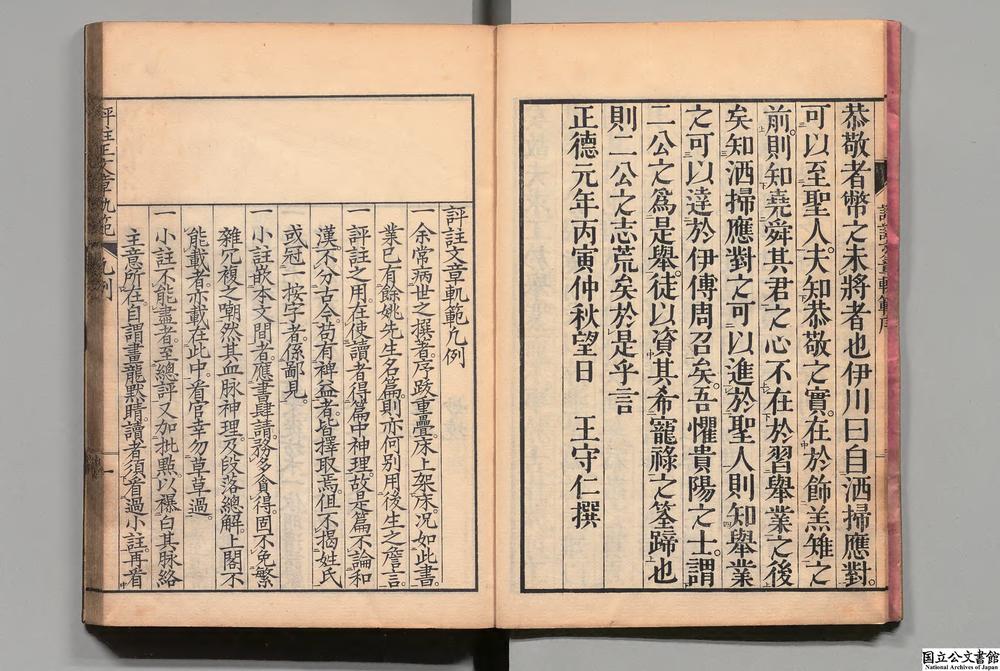 恭敬者幣之未將者也伊川曰自洒掃應對
可以至聖人夫知恭敬之實在於飾羔雉之
前則知堯舜其君之心不在於習舉業之後
矣知洒掃應對之可以進於聖人則知舉業
之可以達於伊傅周召矣吾懼貴陽之士謂
二公之爲是舉徒以資其希寵祿之筌蹄也
則二公之志荒矣於是乎言
正德元年丙寅仲秋望日　王守仁撰
評註文章軌範凡例
一余常病世之撰著序跋重疊床上架床况如此書
業已有餘姚先生名篇則亦何別用後生之詹言
一評註之用在使讀者得篇中神理故是篇不論和
漢不分古今苟有裨益者皆擇取焉但不揭姓氏
或冠一按字者係鄙見
一小註嵌本文間者應書肆請務多貪得固不免繁
雜冗複之嘲然其血脉神理及段落總解上閣不
能載者亦載在此中看官幸勿草草過
一小註不能盡者至總評又加批點以襮白其脉絡
主意所在自謂畫龍㸃睛讀者須看過小註再看
評註文章軌範
凡例
一
國立公文書館
National Archives of Japan